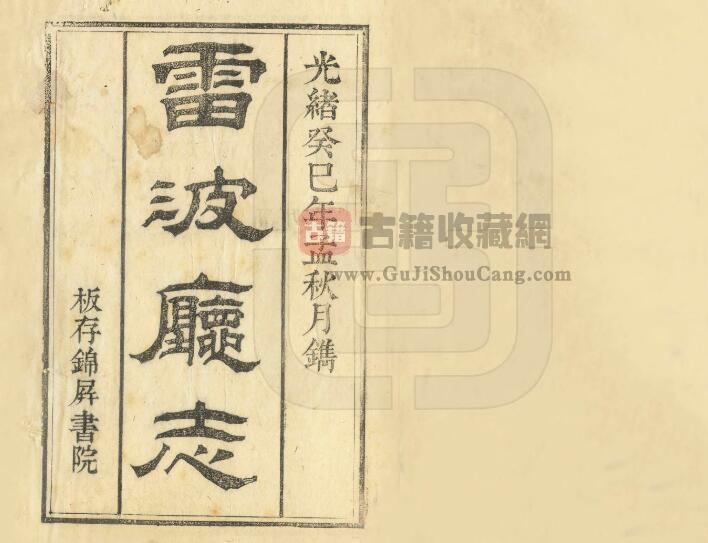 光緒癸巳年孟秋月鐫
雷波廳志
板存錦屛書院
古籍
古籍收藏網
www.GuJiShouCang.com